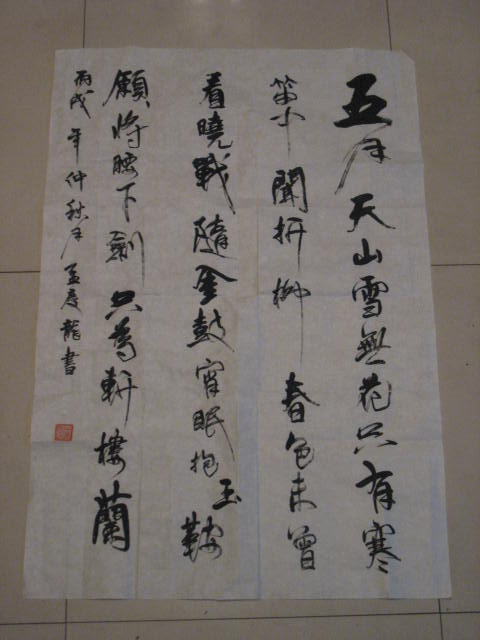 五月天山雪無花只有寒
笛中聞折柳春色未曾
看曉戰隨金鼓宵眠抱玉鞍
願將腰下劍只為斬樓蘭
丙戌年仲秋月孟庆龍書